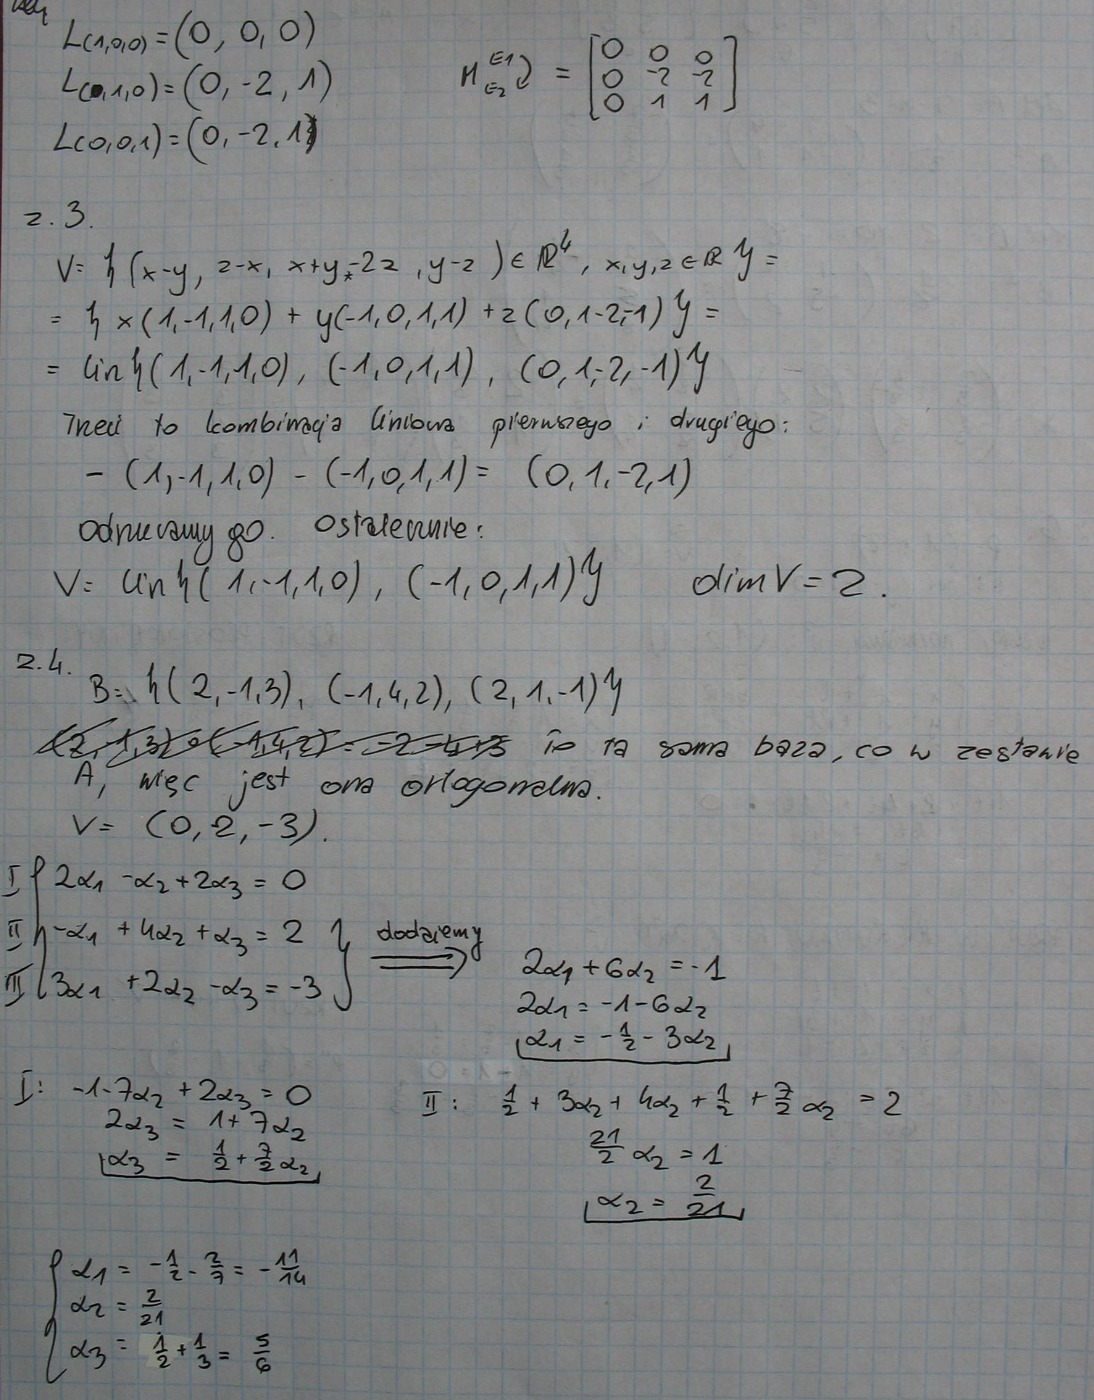 L(1,0,0) = (0, 0, 0)
L(0,1,0) = (0, -2, 1)
L(0,0,1) = (0, -2, 1)
M E1 E2 = [0 0 0
0 -2 -2
0 1 1]
z.3.
V = { (x-y, z-x, x+y-2z, y-z) ∈ ℝ⁴, x,y,z ∈ ℝ } =
= { x(1,-1,1,0) + y(-1,0,1,1) + z(0,1-2,-1) } =
= lin{ (1,-1,1,0), (-1,0,1,1), (0,1,-2,-1) }
Trzeci to kombinacja liniowa pierwszego i drugiego:
- (1,-1,1,0) - (-1,0,1,1) = (0,1,-2,1)
Odrzucamy go. Ostatecznie:
V = lin{ (1,-1,1,0), (-1,0,1,1) } dim V = 2.
z.4.
B = { (2,-1,3), (-1,4,2), (2,1,-1) }
to ta sama baza, co w zestawie
A, więc jest ona ortogonalna.
V = (0, 2, -3).
I 2α1 - α2 + 2α3 = 0
II -α1 + 4α2 + α3 = 2
III 3α1 + 2α2 - α3 = -3
dodajemy
2α1 + 6α2 = -1
2α1 = -1 - 6α2
α1 = -1/2 - 3α2
I: -1-7α2 + 2α3 = 0
2α3 = 1 + 7α2
α3 = 1/2 + 7/2 α2
II: 1/2 + 3α2 + 4α2 + 1/2 + 7/2 α2 = 2
21/2 α2 = 1
α2 = 2/21
α1 = -1/2 - 2/7 = -11/14
α2 = 2/21
α3 = 1/2 + 1/3 = 5/6